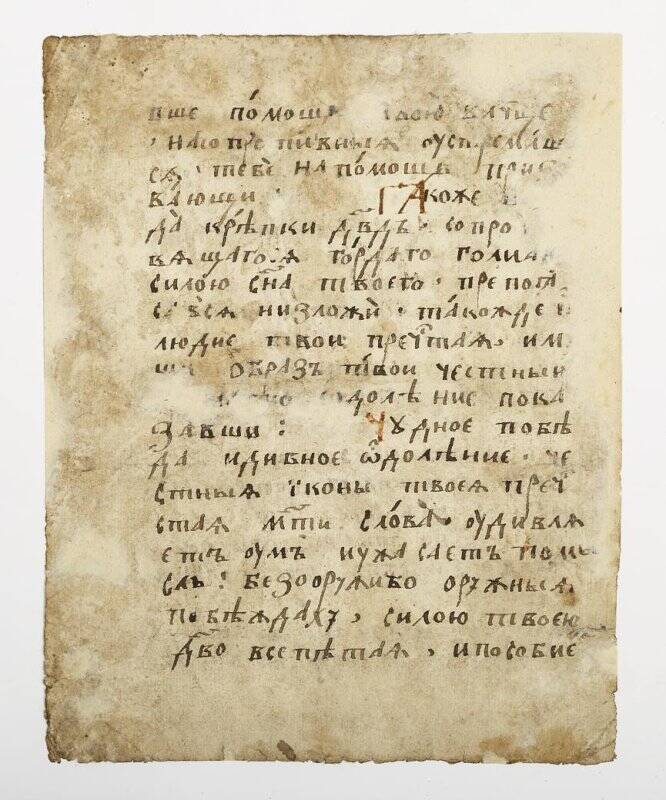 вше помощи твоею
на сопротивныя оустремльш
ся · тебе на помощь приз
вающи · Ꙗкоже
да крѣпки двдъ · сопро
вящагося гордаго голиаѳ
силою сна твоего · препоꙗ
савься низложи · такожде и
людие твои пречтая · им
ще образъ твои честныи
одолѣние пока
завши : Чудное побѣ
да идивное ѿдолѣние · че
стныѧ иконы твоеѧ преч
стаѧ мти слова · оудивлѧ
етъ оумъ иужасаетъ помы
слъ : безооружиѥбо оружныѧ
побѣждаху · силою твоею
дво всепѣтаѧ · ипособие